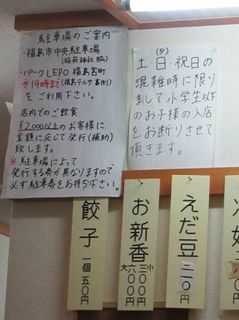 駐車場のご案内
・福島市中央駐車場
(稲荷神社脇)
・パークLEPO福島宮町
※19時まで(福島テルサ裏側)
をご利用下さい。
店内でのご飲食
¥2,000以上のお客様に
金額に応じて発行(補助)
致します。
※駐車場によって
発行する券が異なりますので
必ず駐車券をお持ち下さい。
土日・祝日の(夕)
混雑時に限り
まして小学生以下
のお子様の入店
をお断りさせて
頂きます。
えだ豆 三一〇円
お新香 小三〇〇円 大六〇〇円
餃子 一個 五〇円